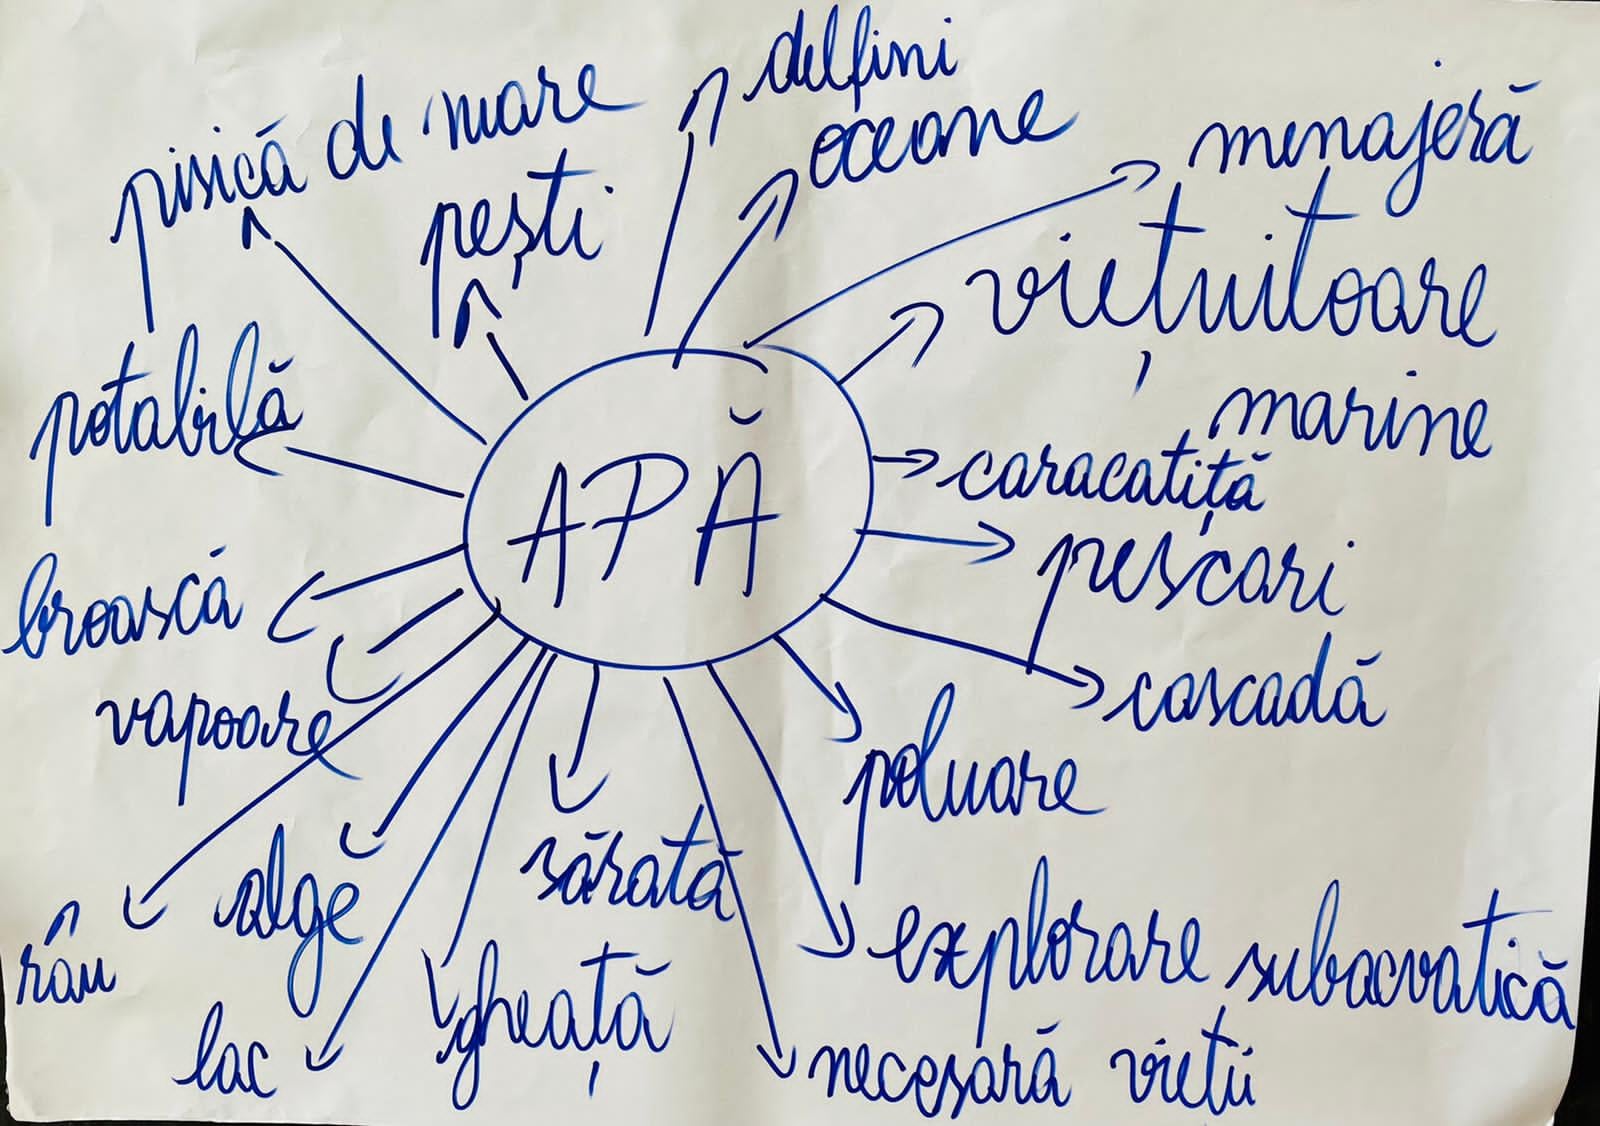 delfini
pisică de mare
oceane
menajeră
pești
viețuitoare
marine
potabilă
caracatiță
APĂ
pescari
broască
cascadă
vapoare
poluare
sărată
alge
explorare subacvatică
râu
gheață
lac
necesară vieții